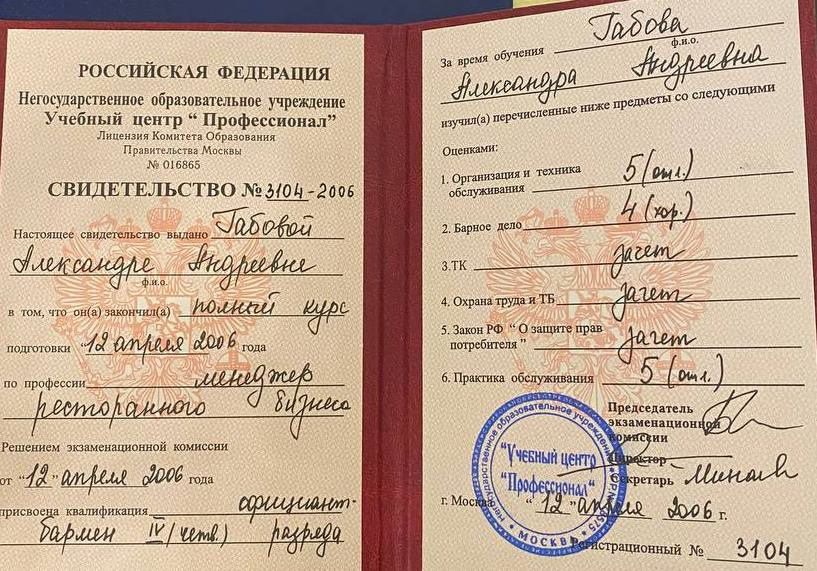 РОССИЙСКАЯ ФЕДЕРАЦИЯ
Негосударственное образовательное учреждение
Учебный центр “ Профессионал”
Лицензия Комитета Образования
Правительства Москвы
№ 016865
СВИДЕТЕЛЬСТВО № 3104-2006
Настоящее свидетельство выдано Габовой
Александре Андреевне
ф.и.о.
в том, что он(а) закончил(а) полный курс
подготовки “12 апреля 2006 года
по профессии менеджер
ресторанного бизнеса
Решением экзаменационной комиссии
от “12” апреля 2006 года
присвоена квалификация официант-
бармен IV (четв.) разряда
За время обучения Габова
ф.и.о.
Александра Андреевна
изучил(а) перечисленные ниже предметы со следующими
Оценками:
1. Организация и техника
обслуживания 5 (отл.)
2. Барное дело 4 (хор.)
3.ТК зачет
4. Охрана труда и ТБ зачет
5. Закон РФ “ О защите прав
потребителя ” зачет
6. Практика обслуживания 5 (отл.)
Председатель
экзаменационной
комиссии
Директор
Секретарь
г. Москва “ 12 ” апреля 2006 г.
Регистрационный № 3104
негосударственное образовательное учреждение
“Учебный центр
“Профессионал”
МОСКВА